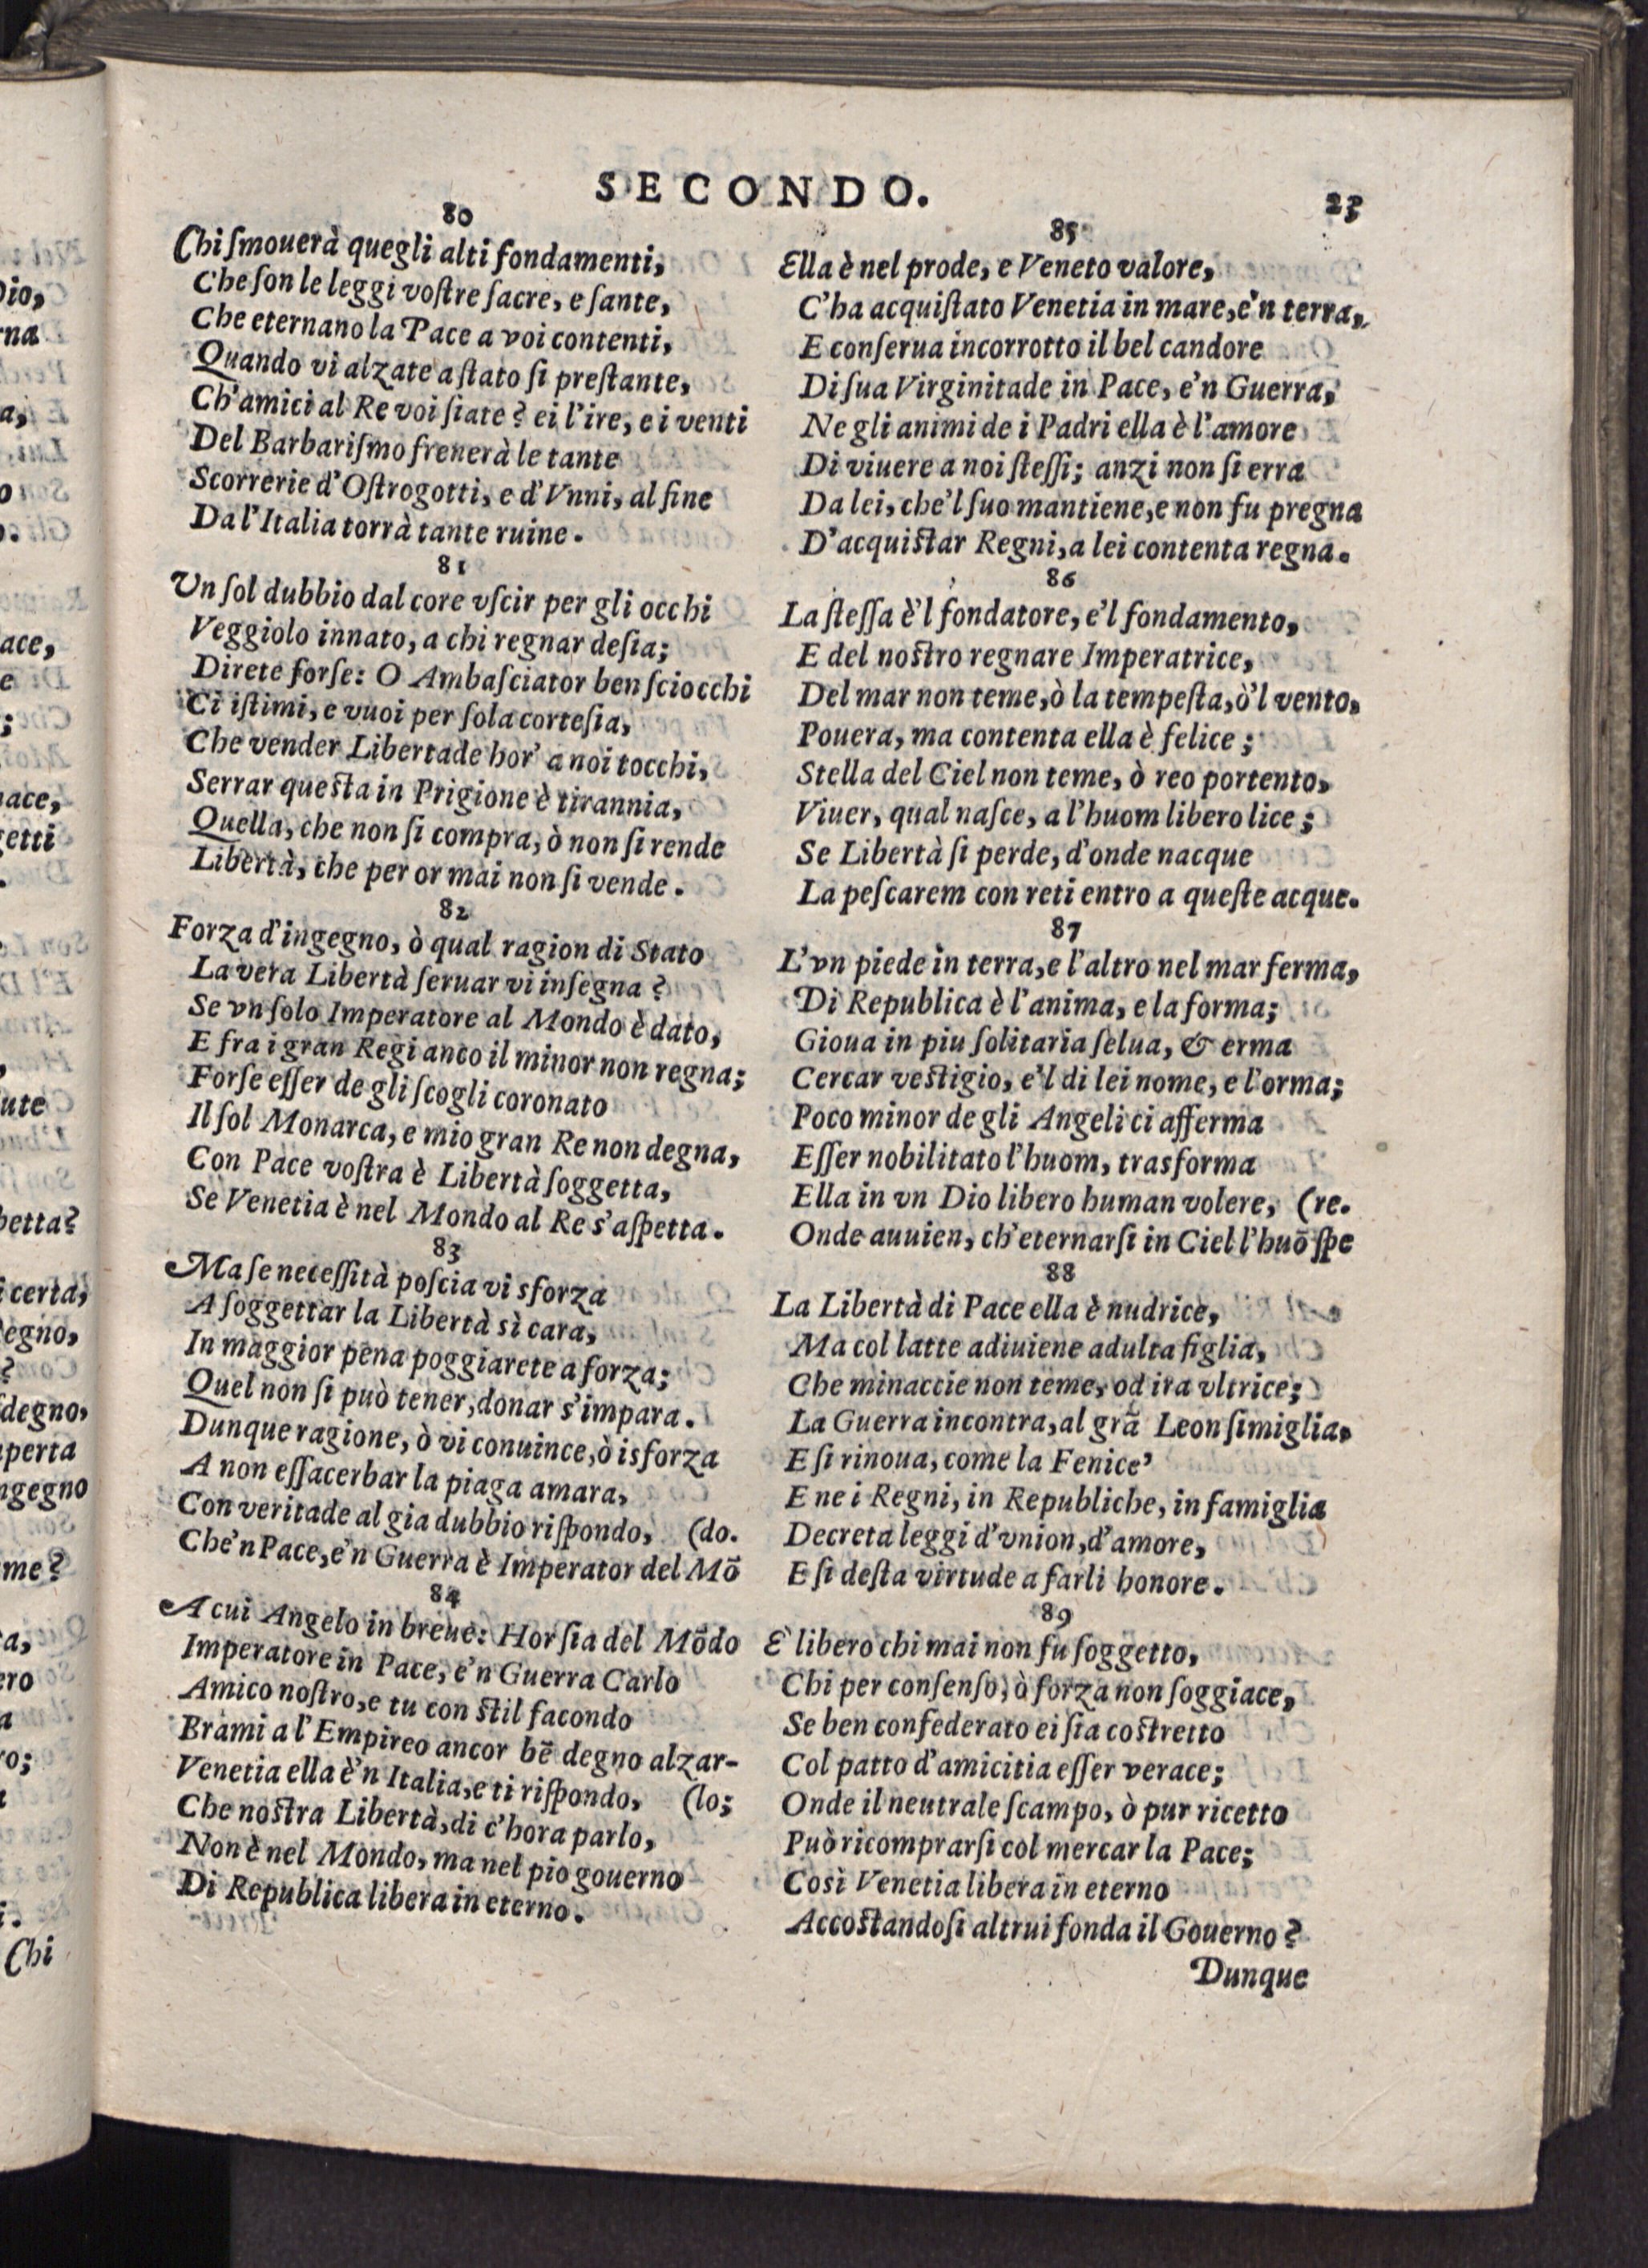 SECONDO.
23
80
Chi ſmouerà quegli alti fondamenti,
Che ſon le leggi voſtre ſacre, e ſante,
Che eternano la Pace a voi contenti,
Quando vi alzate a ſtato ſi preſtante,
Ch'amici al Re voi ſiate? ei l'ire, e i venti
Del Barbariſmo frenerà le tante
Scorrerie d'Oſtrogotti, e d'Vnni, al fine
Da l'Italia torrà tante ruine.
81
Un ſol dubbio dal core vſcir per gli occhi
Veggiolo innato, a chi regnar deſia;
Direte forſe: O Ambaſciator ben ſciocchi
Ci iſtimi, e vuoi per ſola corteſia,
Che vender Libertade hor' a noi tocchi,
Serrar queſta in Prigione è tirannia,
Quella, che non ſi compra, ò non ſi rende
Libertà, che per or mai non ſi vende.
82
Forza d'ingegno, ò qual ragion di Stato
La vera Libertà ſeruar vi inſegna?
Se vn ſolo Imperatore al Mondo è dato,
E fra i gran Regi anco il minor non regna;
Forſe eſſer de gli ſcogli coronato
Il ſol Monarca, e mio gran Re non degna,
Con Pace voſtra è Libertà ſoggetta,
Se Venetia è nel Mondo al Re s'aſpetta.
83
Ma ſe neceſſità poſcia vi sforza
A ſoggettar la Libertà sì cara,
In maggior pena poggiarete a forza;
Quel non ſi può tener, donar s'impara.
Dunque ragione, ò vi conuince, ò isforza
A non eſſacerbar la piaga amara,
Con veritade al gia dubbio riſpondo, (do.
Che'n Pace, e'n Guerra è Imperator del Mō
84
A cui Angelo in breue: Hor ſia del Mōdo
Imperatore in Pace, e'n Guerra Carlo
Amico noſtro, e tu con ſtil facondo
Brami a l'Empireo ancor bē degno alzar-
Venetia ella è'n Italia, e ti riſpondo, (lo;
Che noſtra Libertà, di c'hora parlo,
Non è nel Mondo, ma nel pio gouerno
Di Republica libera in eterno.
85
Ella è nel prode, e Veneto valore,
C'ha acquiſtato Venetia in mare, e'n terra,
E conſerua incorrotto il bel candore
Di ſua Virginitade in Pace, e'n Guerra,
Ne gli animi de i Padri ella è l'amore
Di viuere a noi ſteſſi; anzi non ſi erra
Da lei, che'l ſuo mantiene, e non fu pregna
D'acquiſtar Regni, a lei contenta regna.
86
La ſteſſa è'l fondatore, e'l fondamento,
E del noſtro regnare Imperatrice,
Del mar non teme, ò la tempeſta, ò'l vento,
Pouera, ma contenta ella è felice;
Stella del Ciel non teme, ò reo portento,
Viuer, qual naſce, a l'huom libero lice;
Se Libertà ſi perde, d'onde nacque
La peſcarem con reti entro a queſte acque.
87
L'vn piede in terra, e l'altro nel mar ferma,
Di Republica è l'anima, e la forma;
Gioua in piu ſolitaria ſelua, & erma
Cercar veſtigio, e'l di lei nome, e l'orma;
Poco minor de gli Angeli ci afferma
Eſſer nobilitato l'huom, trasforma
Ella in vn Dio libero human volere, (re.
Onde auuien, ch'eternarſi in Ciel l'huō ſpe
88
La Libertà di Pace ella è nudrice,
Ma col latte adiuiene adulta figlia,
Che minaccie non teme, od ira vltrice;
La Guerra incontra, al grā Leon ſimiglia,
E ſi rinoua, come la Fenice'
E ne i Regni, in Republiche, in famiglia
Decreta leggi d'vnion, d'amore,
E ſi deſta virtude a farli honore.
89
E' libero chi mai non fu ſoggetto,
Chi per conſenſo, ò forza non ſoggiace,
Se ben confederato ei ſia coſtretto
Col patto d'amicitia eſſer verace;
Onde il neutrale ſcampo, ò pur ricetto
Può ricomprarſi col mercar la Pace;
Così Venetia libera in eterno
Accoſtandoſi altrui fonda il Gouerno?
Dunque